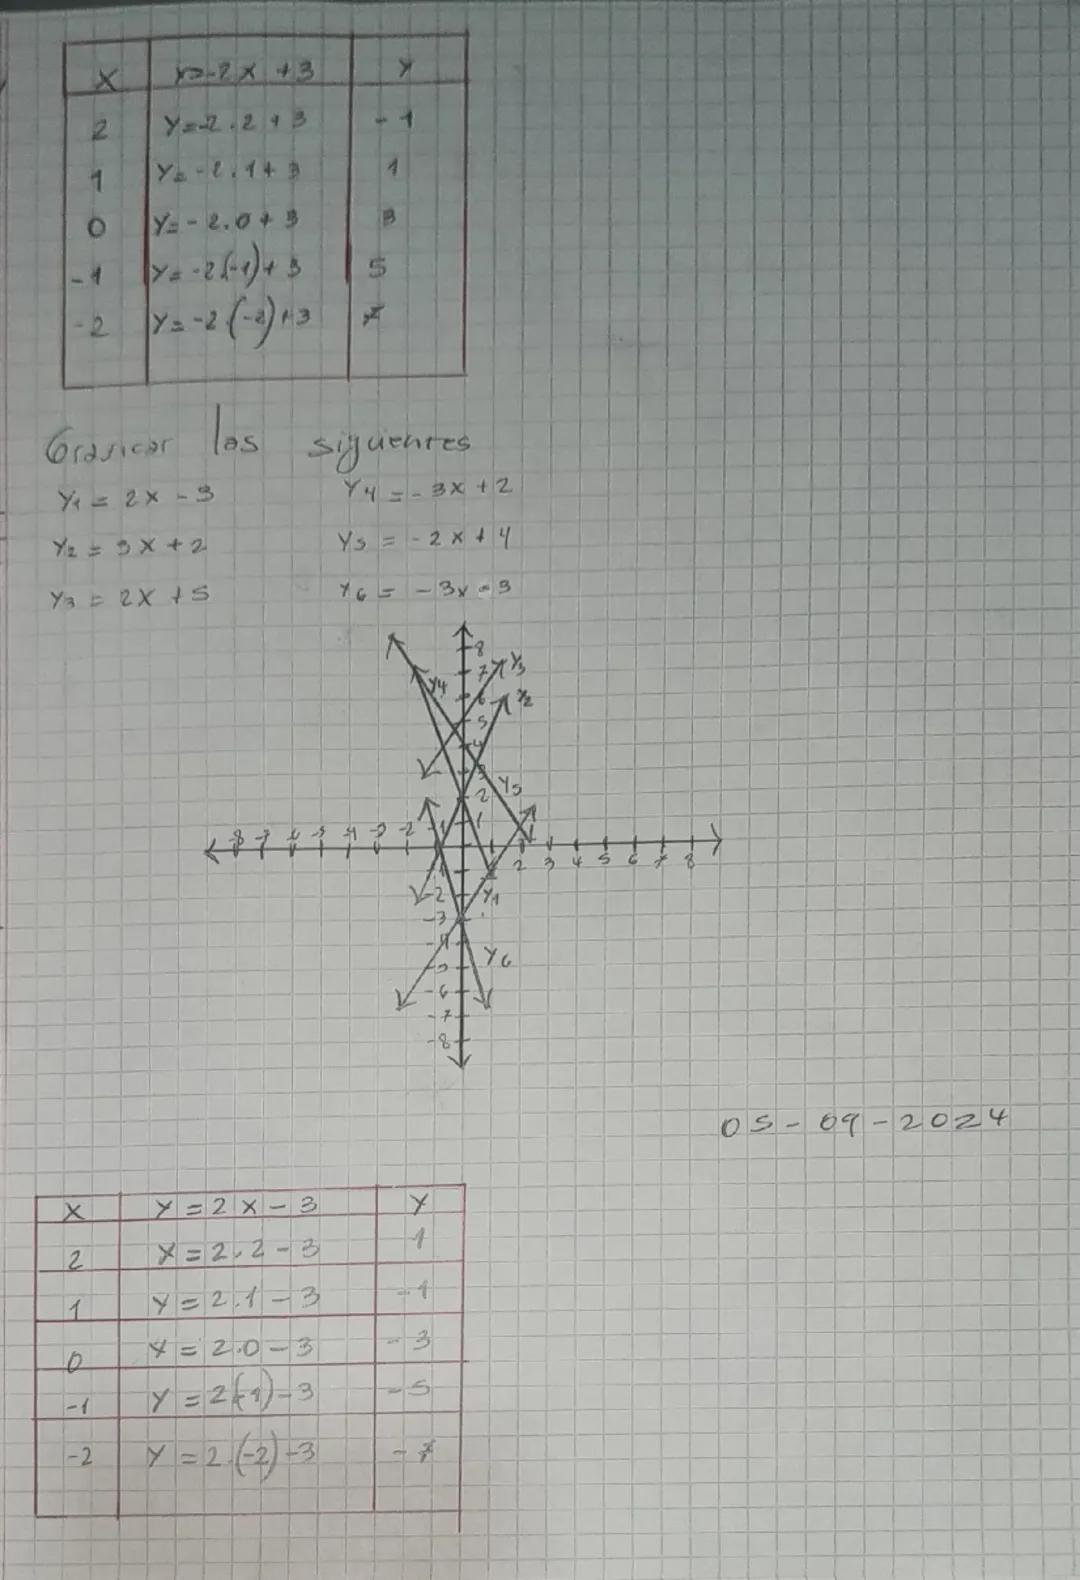 X Y=-2X+3 Y
2 Y=-2.2+3 -1
1 Y=-2.1+3 1
0 Y=-2.0+3 3
-1 Y=-2(-1)+3 5
-2 Y=-2.(-2)+3 7
Graficar las siguientes
Y1 = 2X - 3 Y4 = -3X+2
Y2 = 3X+2 Y5 = -2X+4
Y3 = 2X+5 Y6 = -3X-3
8
7 Y3
Y4 6 Y2
5
4
3 Y5
2
-8 -7 -6 -5 -4 -3 -2 -1 1
2 3 4 5 6 7 8
-2 Y1
-3
-4 Y6
-5
-6
-7
-8
05-09-2024
X Y=2X-3 Y
2 Y=2.2-3 1
1 Y=2.1-3 -1
0 Y=2.0-3 -3
-1 Y=2(-1)-3 -5
-2 Y=2.(-2)-3 -7